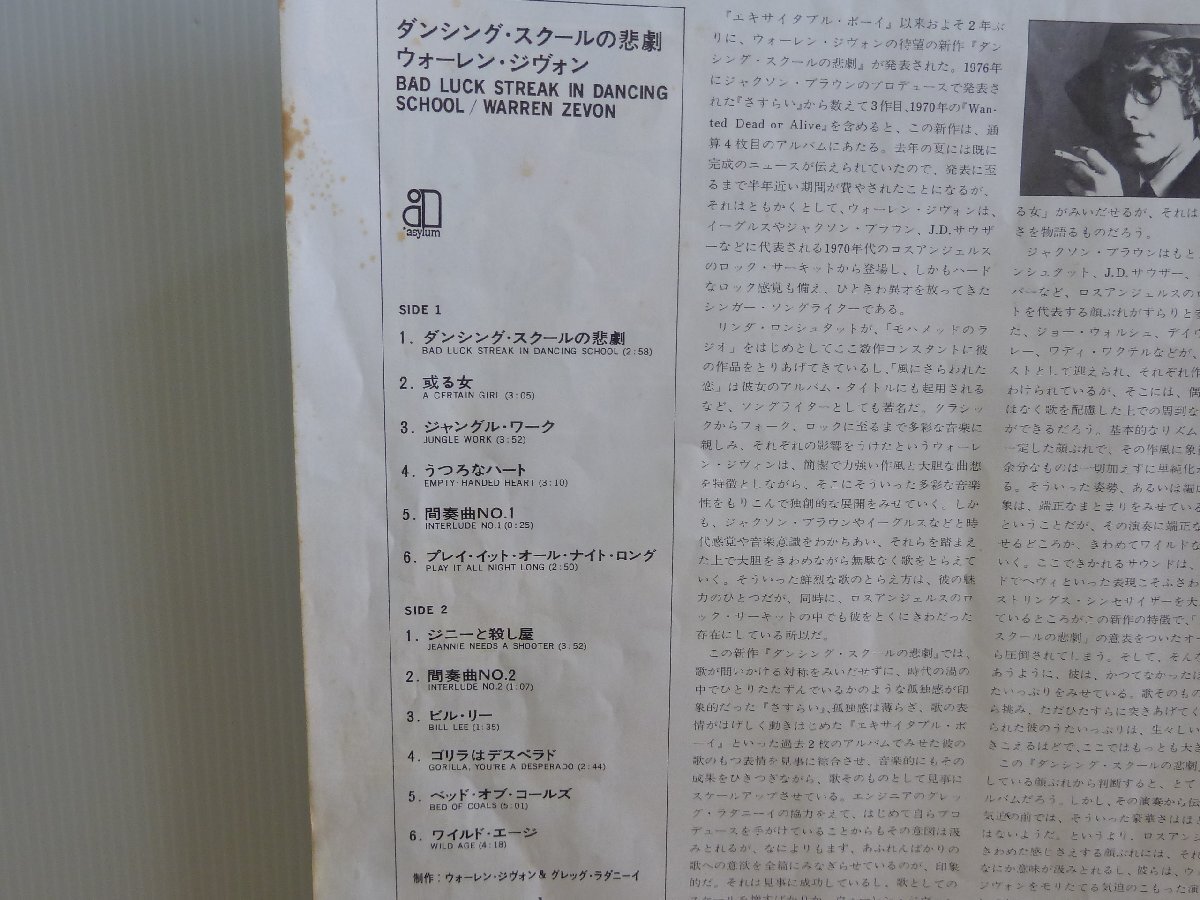 ダンシング・スクールの悲劇
ウォーレン・ジヴォン
BAD LUCK STREAK IN DANCING
SCHOOL / WARREN ZEVON
asylum
SIDE 1
1. ダンシング・スクールの悲劇
BAD LUCK STREAK IN DANCING SCHOOL (2:58)
2. 或る女
A CERTAIN GIRL (3:05)
3. ジャングル・ワーク
JUNGLE WORK (3:52)
4. うつろなハート
EMPTY-HANDED HEART (3:10)
5. 間奏曲NO.1
INTERLUDE NO.1 (0:25)
6. プレイ・イット・オール・ナイト・ロング
PLAY IT ALL NIGHT LONG (2:50)
SIDE 2
1. ジニーと殺し屋
JEANNIE NEEDS A SHOOTER (3:52)
2. 間奏曲NO.2
INTERLUDE NO.2 (1:07)
3. ビル・リー
BILL LEE (1:35)
4. ゴリラはデスペラド
GORILLA, YOU'RE A DESPERADO (2:44)
5. ベッド・オブ・コールズ
BED OF COALS (5:01)
6. ワイルド・エージ
WILD AGE (4:18)
制作：ウォーレン・ジヴォン＆グレッグ・ラダニーイ
『エキサイタブル・ボーイ』以来およそ2年ぶ
りに、ウォーレン・ジヴォンの待望の新作『ダン
シング・スクールの悲劇』が発表された。1976年
にジャクソン・ブラウンのプロデュースで発表さ
れた『さすらい』から数えて3作目、1970年の『Wan-
ted Dead or Alive』を含めると、この新作は、通
算4枚目のアルバムにあたる。去年の夏には既に
完成のニュースが伝えられていたので、発表に至
るまで半年近い期間が費やされたことになるが、
それはともかくとして、ウォーレン・ジヴォンは、
イーグルスやジャクソン・ブラウン、J.D.サウザ
ーなどに代表される1970年代のロスアンジェルス
のロック・サーキットから登場し、しかもハード
なロック感覚も備え、ひときわ異才を放ってきた
シンガー・ソングライターである。
リンダ・ロンシュタットが、「モハメッドのラ
ジオ」をはじめとしてここ数作コンスタントに彼
の作品をとりあげてきているし、「風にさらわれた
恋」は彼女のアルバム・タイトルにも起用される
など、ソングライターとしても著名だ。クラシッ
クからフォーク、ロックに至るまで多彩な音楽に
親しみ、それぞれの影響をうけたというウォーレ
ン・ジヴォンは、簡潔で力強い作風と大胆な曲想
を特徴としながら、そこにそういった多彩な音楽
性をもりこんで独創的な展開をみせていく。しか
も、ジャクソン・ブラウンやイーグルスなどと時
代感覚や音楽意識をわかちあい、それらを踏まえ
た上で大胆をきわめながら無駄なく歌をとらえて
いく。そういった鮮烈な歌のとらえ方は、彼の魅
力のひとつだが、同時に、ロスアンジェルスのロ
ック・サーキットの中でも彼をとくにきわだった
存在にしている所以だ。
この新作『ダンシング・スクールの悲劇』では、
歌が問いかける対称をみいだせずに、時代の渦の
中でひとりたたずんでいるかのような孤独感が印
象的だった『さすらい』、孤独感は薄らぎ、歌の表
情がはげしく動きはじめた『エキサイタブル・ボ
ーイ』といった過去2枚のアルバムでみせた彼の
歌のもつ表情を見事に綜合させ、音楽的にもその
成果をひきつぎながら、歌そのものとして見事に
スケールアップさせている。エンジニアのグレッ
グ・ラダニーイの協力をえて、はじめて自らプロ
デュースを手がけていることからもその意図は汲
みとれるが、なによりもまず、あふれんばかりの
歌への意欲を全篇にみなぎらせているのが、印象
的だ。それは見事に成功しているし、歌としての
る女」がみいだせるが、それは
さを物語るものだろう。
ジャクソン・ブラウンはもと
ンシュタット、J.D.サウザー、
バーなど、ロスアンジェルスの
トを代表する顔ぶれがずらりとそ
た、ジョー・ウォルシュ、デイヴ
レー、ワディ・ワクテルなどが、
ストとして迎えられ、それぞれ作
わけられているが、そこには、偶
はなく歌を配慮した上での周到な
ができるだろう。基本的なリズム
一定した顔ぶれで、その作風に象
余分なものは一切加えずに単純化
る。そういった姿勢、あるいは編
象は、端正なまとまりをみせてい
ということだが、その演奏に端正
せるどころか、きわめてワイルドな
いく。ここできかれるサウンドは、
ドでヘヴィといった表現こそふさわ
ストリングス・シンセサイザーを大
ているところがこの新作の特徴で、「
スクールの悲劇」の意表をついたオ
ら圧倒されてしまう。そして、そん
あうように、彼は、かつてなかった
たいっぷりをみせている。歌そのもの
ら挑み、ただひたすらに突きあげてく
られた彼のうたいっぷりは、生々しい
きこえるほどで、ここではもっとも大き
この『ダンシング・スクールの悲劇』
している顔ぶれから判断すると、とて
ルバムだろう。しかし、その演奏から伝
気迫の前では、そういった豪華さはほと
はないようだ。というより、ロスアン
きわめた感じさえする顔ぶれには、それ
なにか意味が汲みとれるし、彼らは、ウ
ジヴォンをモリたてる気迫のこもった演